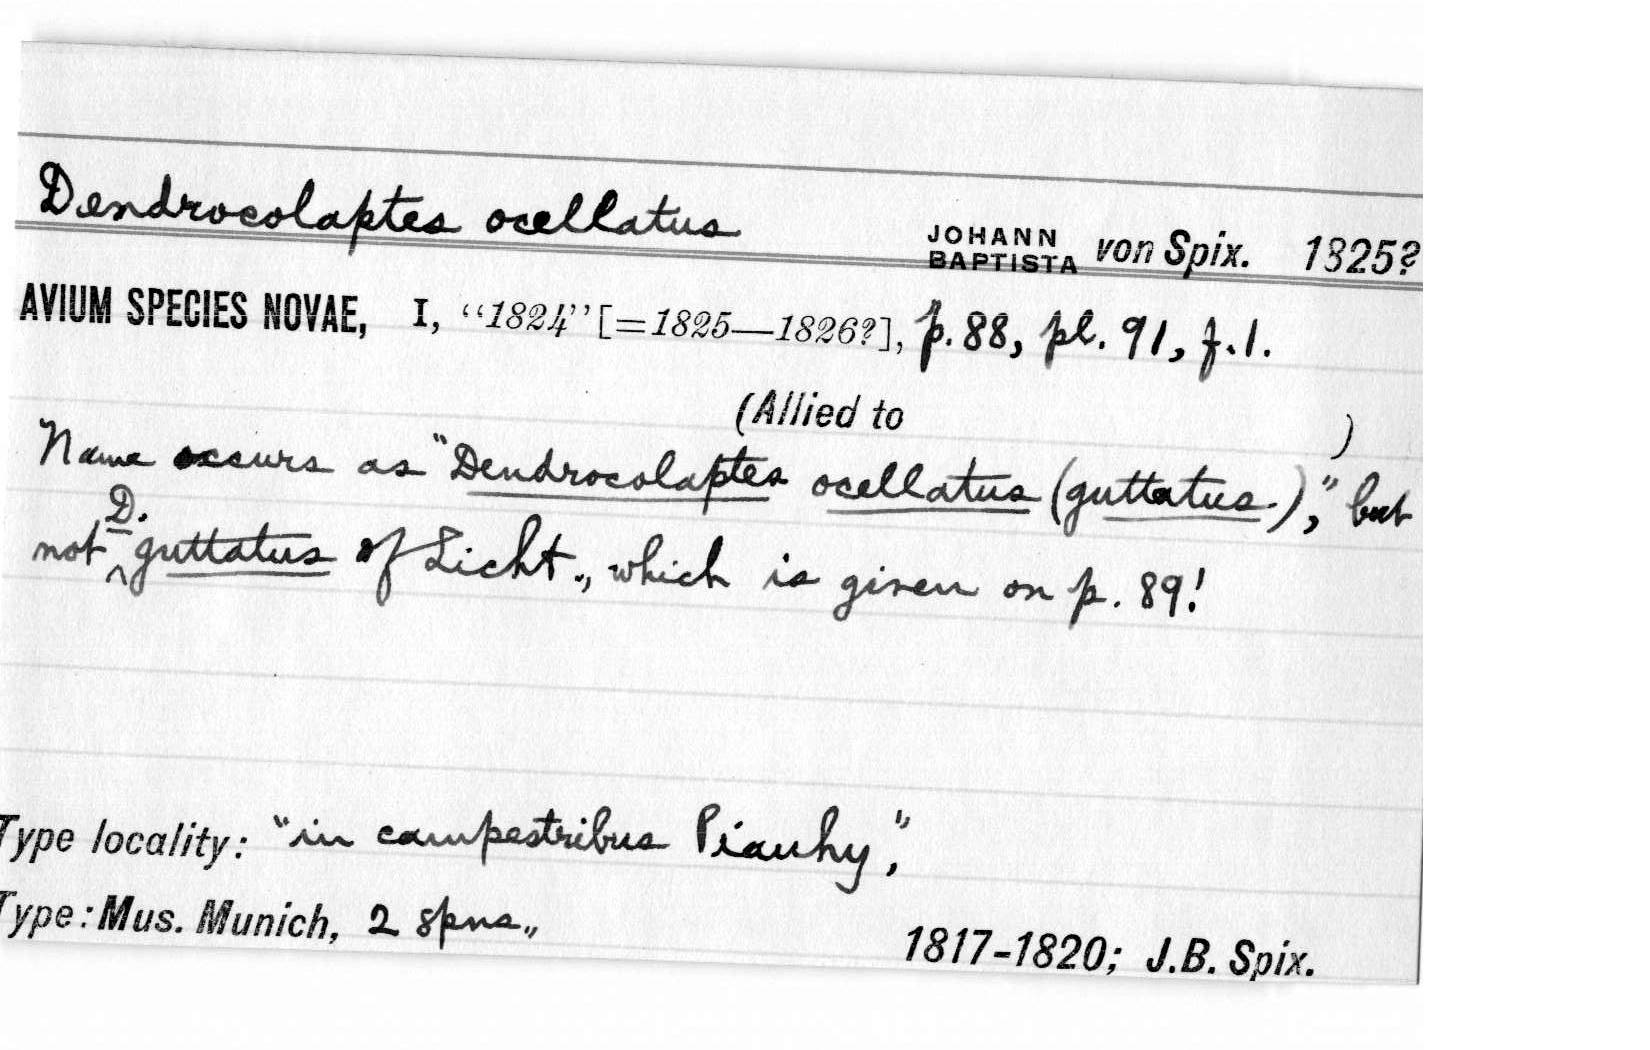 Dendrocolaptes ocellatus JOHANN BAPTISTA von Spix. 1825?
AVIUM SPECIES NOVAE, I, “1824” [=1825—1826?], p. 88, pl. 91, f. 1.
(Allied to )
Name occurs as "Dendrocolaptes ocellatus (guttatus.)," but
not D. guttatus of Licht., which is given on p. 89!
Type locality: "in campestribus Piauhy",
Type: Mus. Munich, 2 spns.,
1817-1820; J.B. Spix.